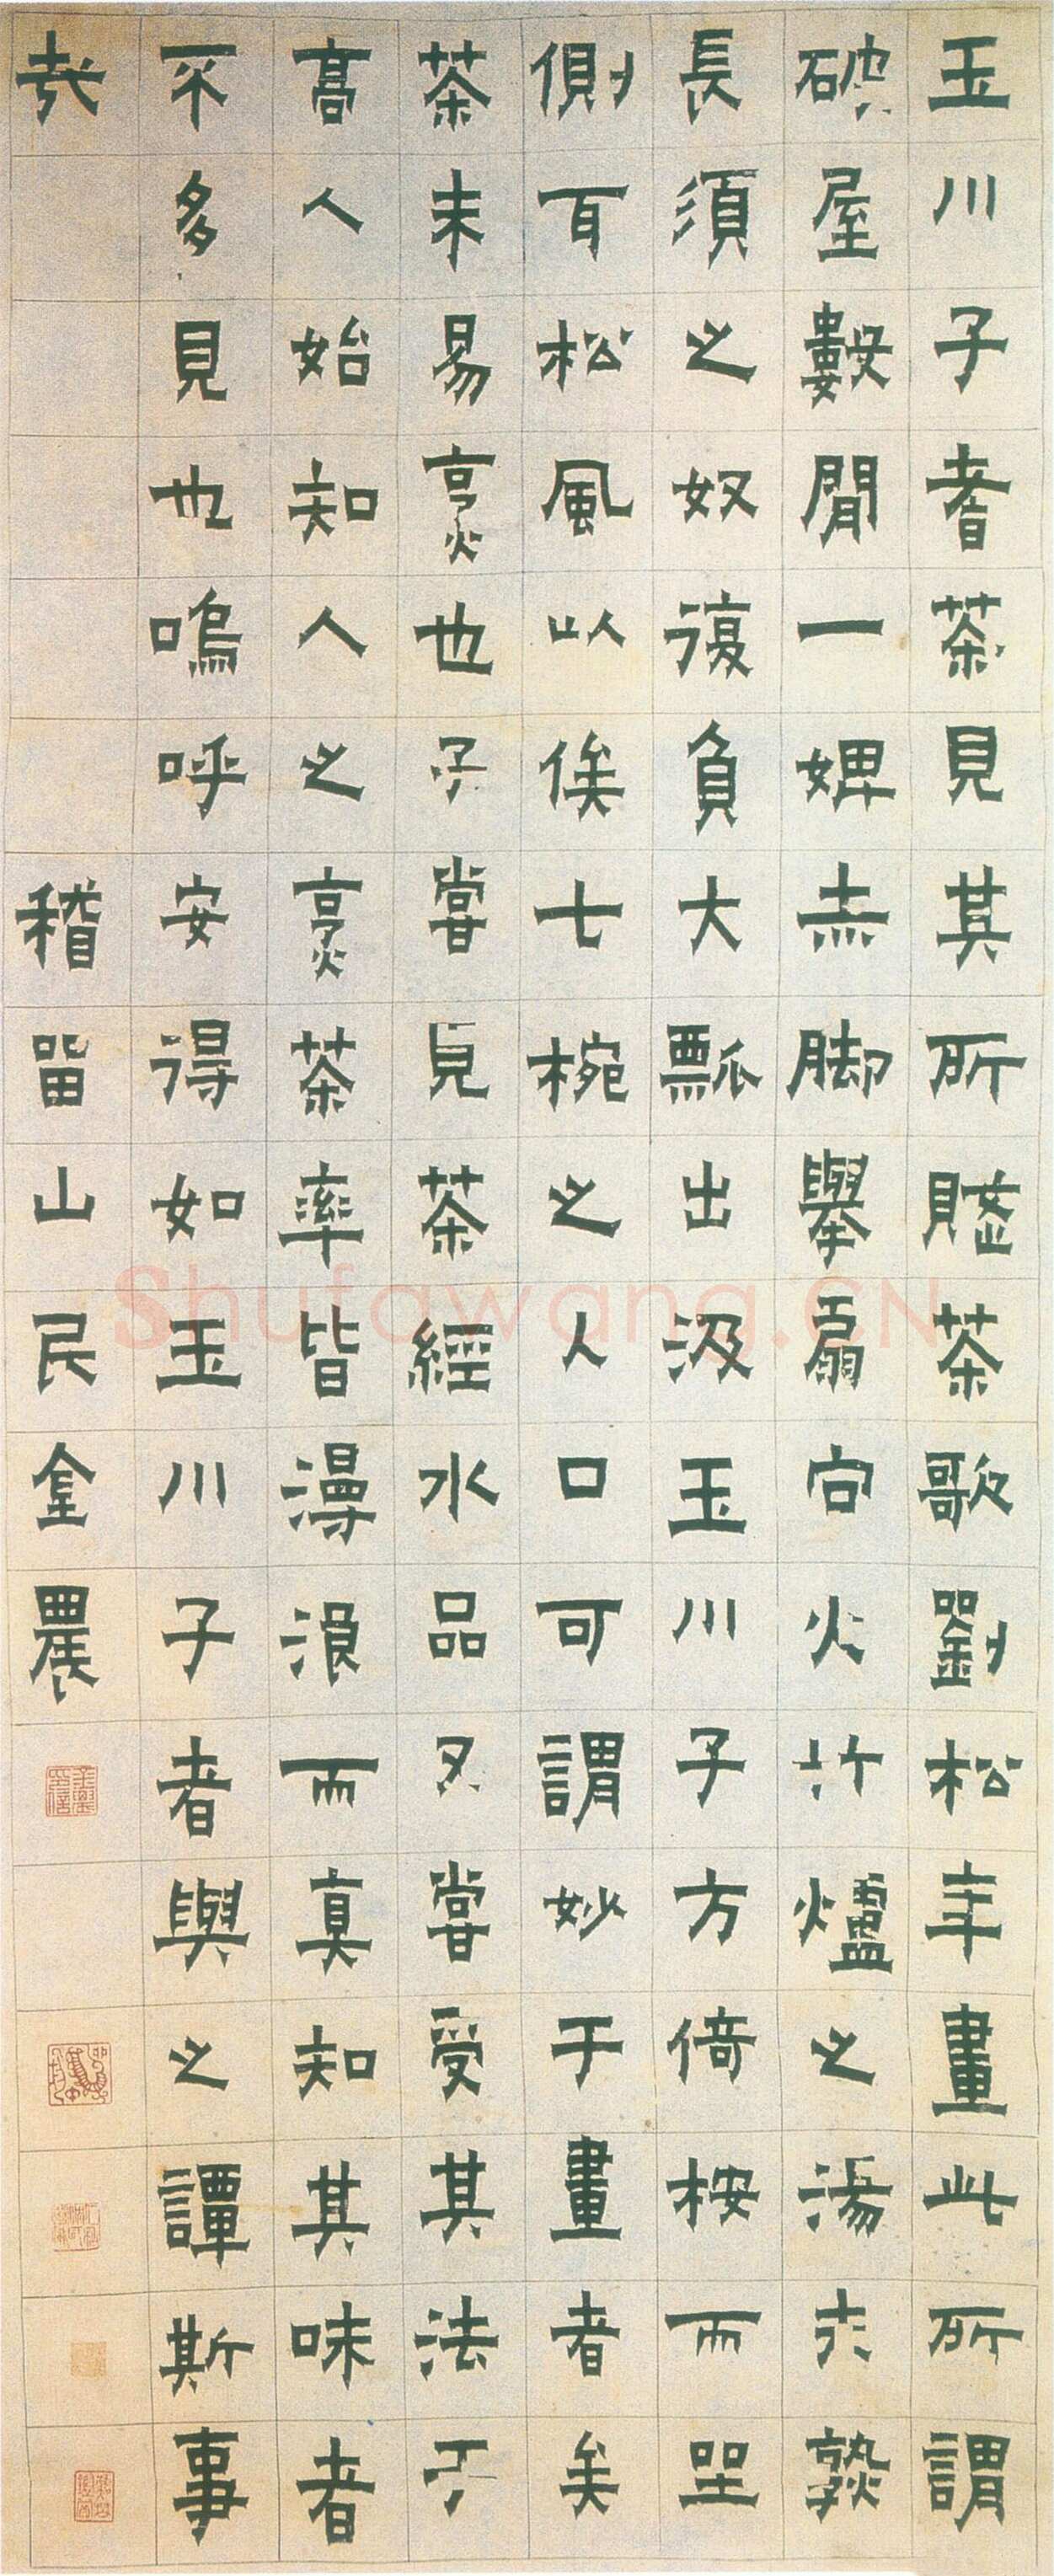 玉川子耆茶見其所賦茶歌劉松年畫此所謂
破屋數間一婢赤脚舉扇向火竹爐之湯未熟
長須之奴復負大瓢出汲玉川子方倚桉而坐
側耳松風以俟七椀之入口可謂妙于畫者矣
茶未易烹也予嘗見茶經水品又嘗受其法于
高人始知人之烹茶率皆漫浪而真知其味者
不多見也嗚呼安得如玉川子者與之譚斯事
哉 稽留山民金農
Shufawang.CN